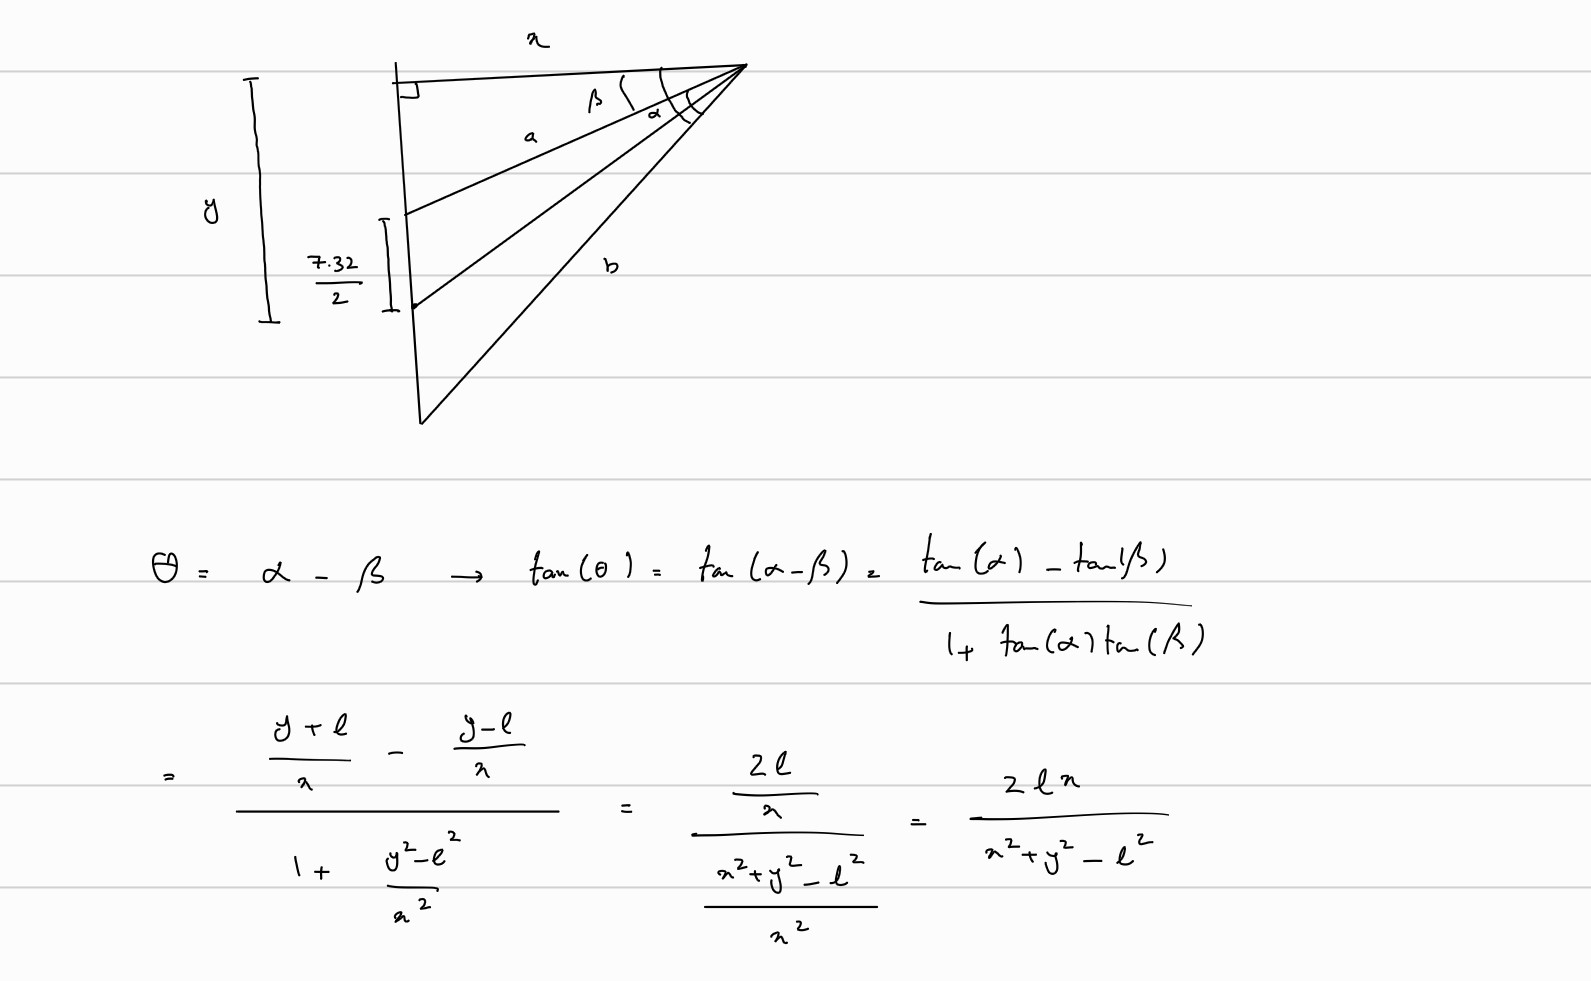 x
β
α
a
y
7.32
2
b
θ = α - β → tan(θ) = tan(α-β) = tan(α) - tan(β)
1+ tan(α)tan(β)
= y+l/x - y-l/x / 1+ y²-l²/x² = 2l/x / x²+y²-l²/x² = 2lx / x²+y²-l²